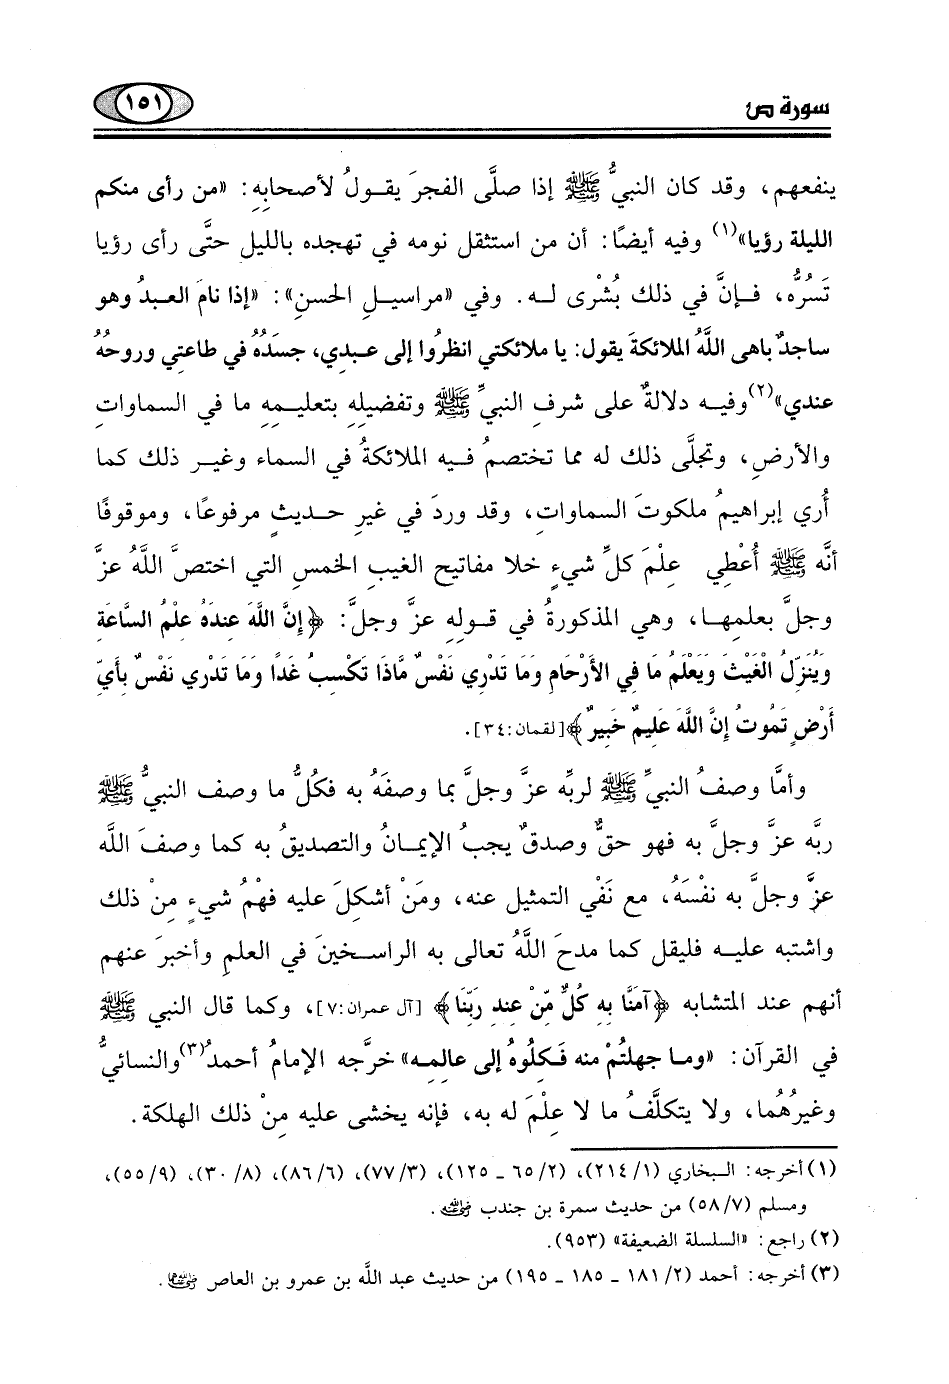 سورة ص
١٥١
ينفعهم، وقد كان النبيُّ ﷺ إذا صلَّى الفجرَ يقولُ لأصحابِهِ: «من رأى منكم
الليلة رؤيا»(١) وفيه أيضًا: أن من استثقل نومه في تهجده بالليل حتَّى رأى رؤيا
تَسُرُّه، فإنَّ في ذلك بُشْرى له. وفي «مراسيلِ الحسنِ»: «إذا نامَ العبدُ وهو
ساجدٌ باهى اللَّهُ الملائكةَ يقول: يا ملائكتي انظرُوا إلى عبدي، جسدُهُ في طاعتي وروحهُ
عندي»(٢) وفيه دلالةٌ على شرفِ النبيِّ ﷺ وتفضيلِهِ بتعليمِهِ ما في السماواتِ
والأرضِ، وتجلَّى ذلك له مما تختصمُ فيه الملائكةُ في السماء وغير ذلك كما
أُري إبراهيمُ ملكوتَ السماواتِ، وقد وردَ في غيرِ حديثٍ مرفوعًا، وموقوفًا
أنَّه ﷺ أُعْطِي علْمَ كلِّ شيءٍ خلا مفاتيح الغيبِ الخمسِ التي اختصَّ اللَّهُ عزَّ
وجلَّ بعلمِها، وهي المذكورةُ في قولِهِ عزَّ وجلَّ: ﴿إِنَّ اللَّهَ عِندَهُ عِلْمُ السَّاعَةِ
وَيُنَزِّلُ الْغَيْثَ وَيَعْلَمُ مَا فِي الأَرْحَامِ وَمَا تَدْرِي نَفْسٌ مَّاذَا تَكْسِبُ غَدًا وَمَا تَدْرِي نَفْسٌ بِأَيِّ
أَرْضٍ تَمُوتُ إِنَّ اللَّهَ عَلِيمٌ خَبِيرٌ﴾[لقمان:٣٤].
وأمَّا وصفُ النبيِّ ﷺ لربِّه عزَّ وجلَّ بما وصفَهُ به فكُلُّ ما وصف النبيُّ ﷺ
ربَّه عزَّ وجلَّ به فهو حقٌّ وصدقٌ يجبُ الإيمانُ والتصديقُ به كما وصفَ اللَّه
عزَّ وجلَّ به نفْسَهُ، مع نَفْي التمثيل عنه، ومَنْ أشكلَ عليه فهْمُ شيءٍ مِنْ ذلك
واشتبه عليه فليقل كما مدحَ اللَّهُ تعالى به الراسخينَ في العلمِ وأخبرَ عنهم
أنهم عند المتشابه ﴿آمَنَّا بِهِ كُلٌّ مِّنْ عِندِ رَبِّنَا﴾ [آل عمران:٧]، وكما قال النبي ﷺ
في القرآن: «وما جهلتُمْ منه فَكِلُوهُ إلى عالمِه» خرَّجه الإمامُ أحمدُ(٣) والنسائيُّ
وغيرُهُما، ولا يتكلَّفُ ما لا علْمَ له به، فإنه يخشى عليه مِنْ ذلك الهلكة.
(١) أخرجه: البخاري (٢١٤/١)، (٦٥/٢ ـ ١٢٥)، (٧٧/٣)، (٨٦/٦)، (٣٠/٨)، (٥٥/٩)،
ومسلم (٥٨/٧) من حديث سمرة بن جندب رضي الله عنه.
(٢) راجع: «السلسلة الضعيفة» (٩٥٣).
(٣) أخرجه: أحمد (١٨١/٢ ـ ١٨٥ ـ ١٩٥) من حديث عبد اللَّه بن عمرو بن العاص رضي الله عنهما.